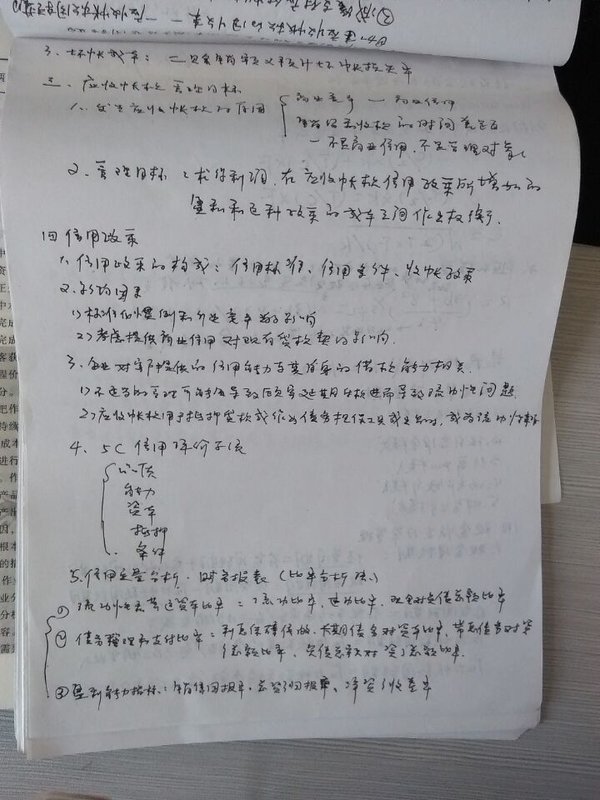 3、坏帐成本：二只会有赊销收入×预计坏帐损失率
三、应收帐款管理目标
1、发生应收帐款的原因
商业竞争 — 商业信用
销售和收款的时间差距
— 不是商业信用，不是管理对象
2、管理目标：求得利润，在应收帐款信用政策所增加的
盈利和这种政策的成本之间作出权衡。
四 信用政策
1、信用政策的构成：信用标准、信用条件、收帐政策
2、影响因素
1)标准的惯例和行业竞争者的影响
2)考虑提供商业信用对现有贷款契约的影响。
3、企业对客户提供的信用能力与其自身的借款能力相关
1)不适当的管理可能会导致顾客延期付款进而导致流动性问题
2)应收帐款用于抵押贷款或作为债务担保工具或出售时，成为流动性
4、5C信用评价系统
品质
能力
资本
抵押
条件
5、信用定量分析：财务报表（比率分析法）
① 流动性和营运资本比率：流动比率、速动比率、现金对负债总额比率
② 债务管理和支付比率：利息保障倍数、长期债务对资本比率、带息债务对资
产总额比率、负债总额对资产总额比率
③ 盈利能力指标：销售回报率、总资产回报率、净资产收益率